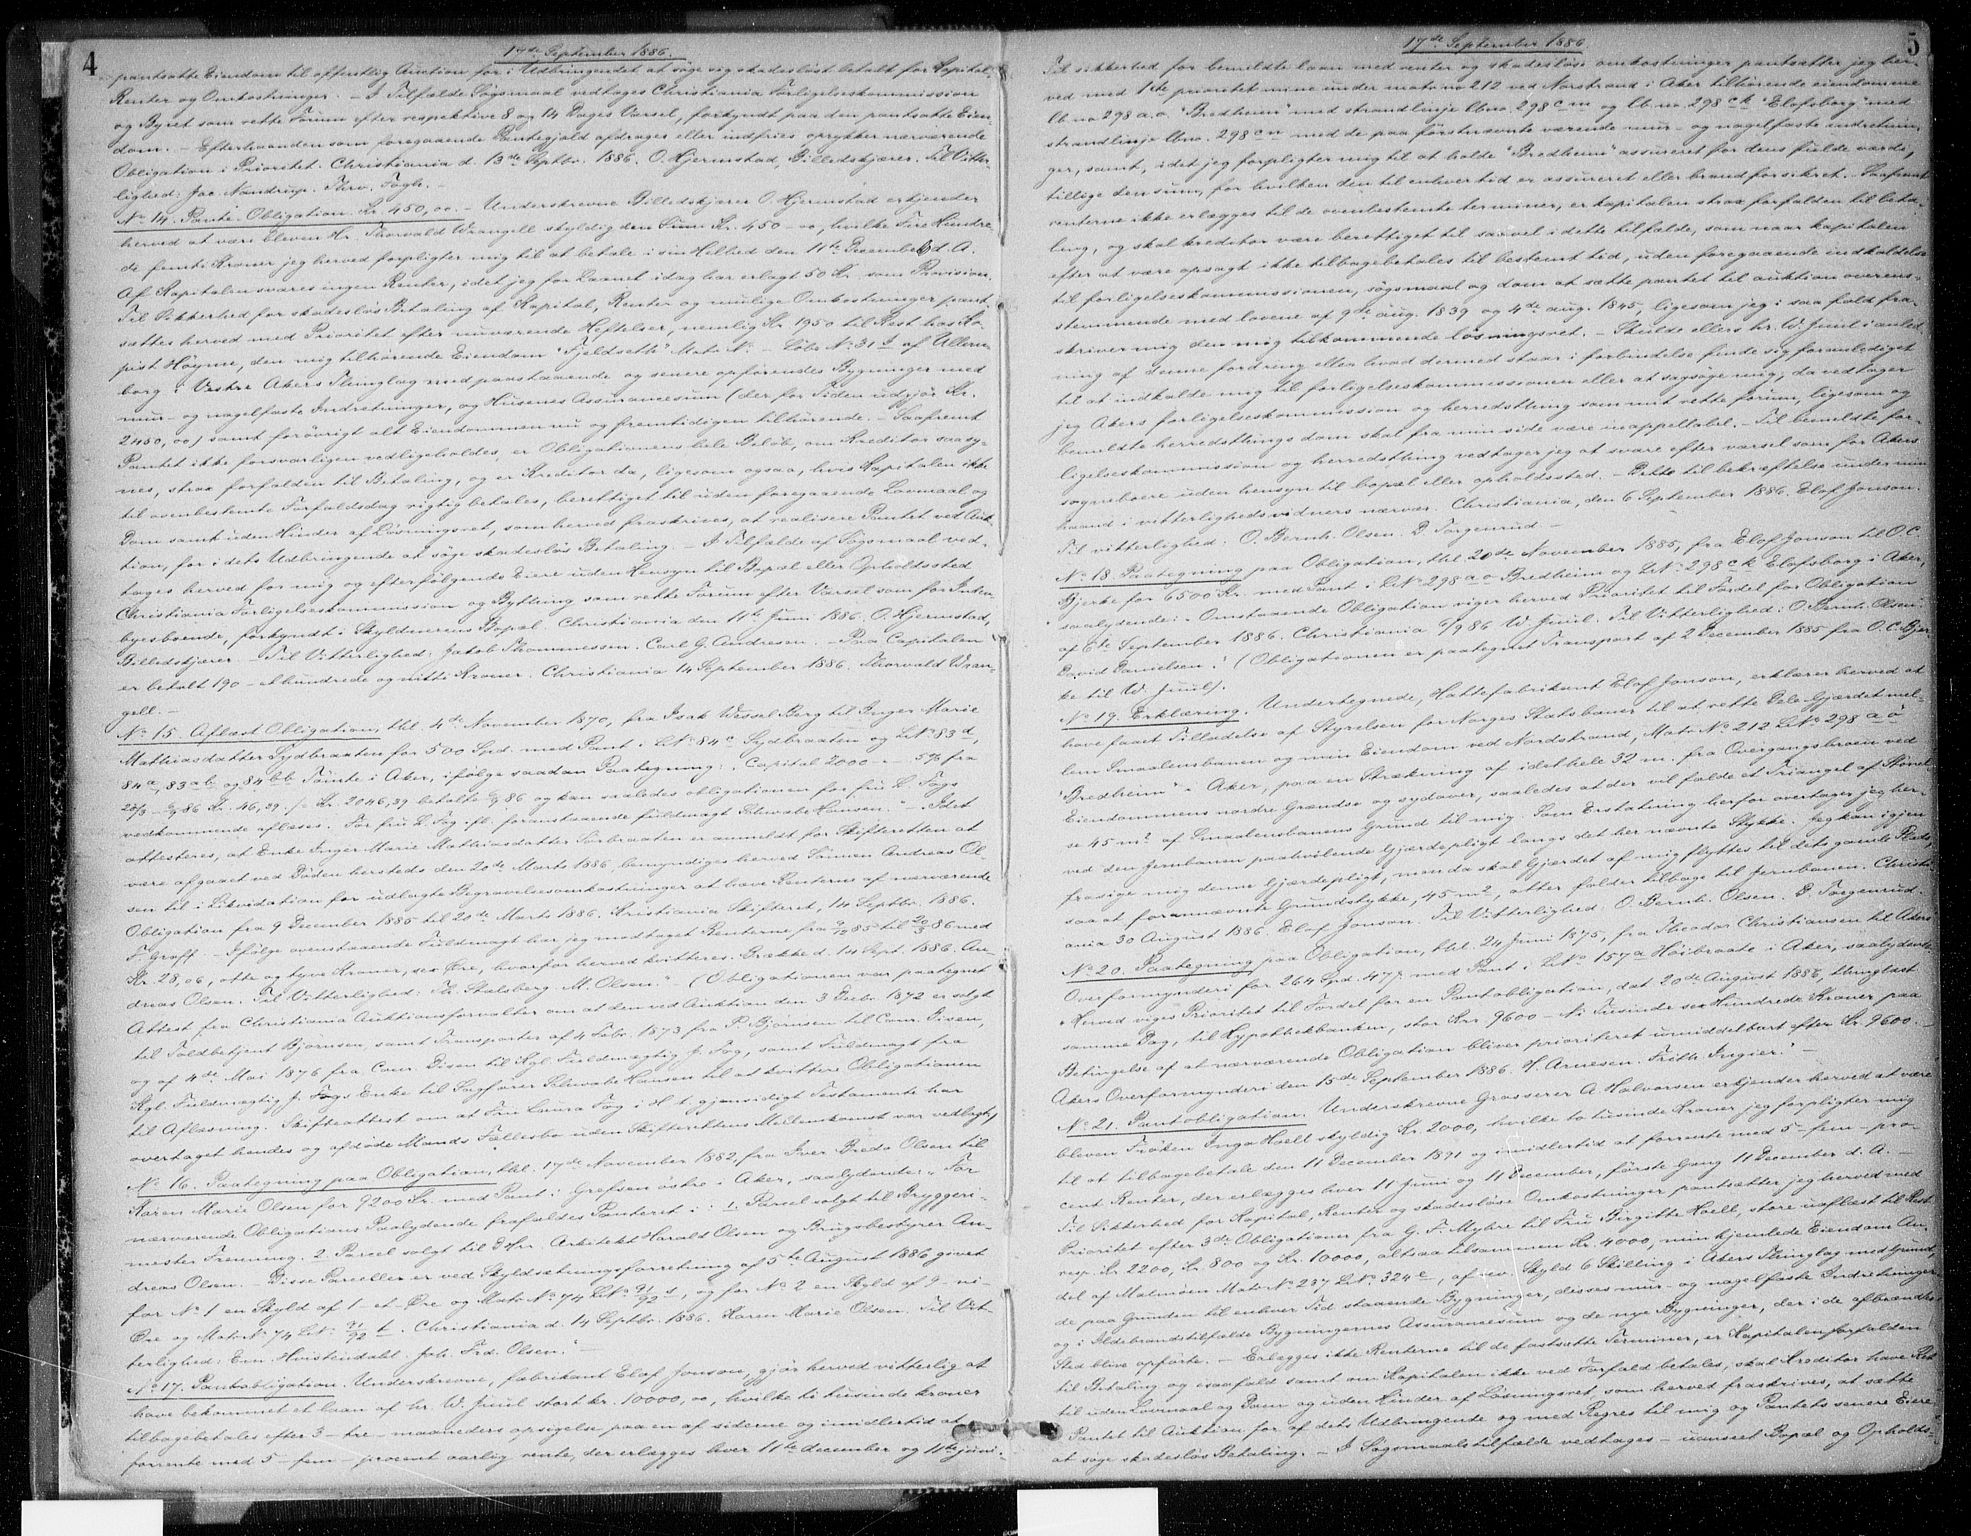 4
17de September 1886.
pantsatte Eiendom til offentlig Auction for i Udbringendet at søge sig skadesløst betalt for Kapital,
Renter og Omkostninger. - I Tilfælde Søgsmaal vedtages Christiania Forligelseskommission
og Byret som rette Forum efter respektive 8 og 14 Dages Varsel, forkyndt paa den pantsatte Eien-
dom. - Efterhaanden som foregaaende Pantegjæld afdrages eller indfries oprykker nærværende
Obligation i Prioritet. Christiania d. 13de Septbr. 1886. O. Hjermstad, Billedskjærer. Til Vitter-
lighed: Jac. Nandrup. Thrv. Fogh. -
No 14. Pante-Obligation Kr. 450,00. - Underskrevne Billedskjærer O. Hjermstad erkjender
herved at være bleven Hr. Thorvald Wrangell skyldig den Sum Kr. 450-00, hvilke Fire Hundre-
de femti Kroner jeg herved forpligter mig til at betale i sin Helhed den 11te December d. A.
Af Kapitalen svares ingen Renter, idet jeg for Laanet idag har erlagt 50 Kr. som Provision.
Til Sikkerhed for skadesløs Betaling af Kapital, Renter og mulige Omkostninger pant-
sættes herved med Prioritet efter nuværende Heftelser, nemlig Kr. 1950 til Rest hos Ko-
pist Høyme, den mig tilhørende Eiendom "Fjeldseth" Matr No - Løbe No 31 af Ullern-
borg i Vestre Akers Thinglag med paastaaende og senere opførendes Bygninger med
mur- og nagelfaste Indretninger, og Husenes Assurancesum (der for Tiden udgjør Kr.
2450,00) samt forøvrigt alt Eiendommen nu og fremtidigen tilhørende. - Saafremt
Pantet ikke forsvarligen vedligeholdes, er Obligationens hele Beløb, om Kreditor saasy-
nes, strax forfalden til Betaling, og er Kreditor da, ligesom ogsaa, hvis Kapitalen ikke
til ovenbestemte Forfaldsdag rigtig betales, berettiget til uden foregaaende Lovmaal og
Dom samt uden Hinder af Løsningsret, som herved fraskrives, at realisere Pantet ved Auk-
tion, for i dets Udbringende at søge skadesløs Betaling. - I Tilfælde af Søgsmaal ved-
tages herved for mig og efterfølgende Eiere uden Hensyn til Bopæl eller Opholdssted
Christiania Forligelseskommission og Bything som rette Forum efter Varsel som for Inden-
byesboende, forkyndt i Skyldnerens Bopæl. Christiania den 11te Juni 1886. O. Hjermstad,
Billedskjærer. - Til Vitterlighed: Jakob Thommessen. Carl G. Andresen. - Paa Capitalen
er betalt 190 - Et hundrede og nitti Kroner. Christiania 14 September 1886. Thorvald Wran-
gell. -
No 15. Aflæst Obligation, thl. 4de November 1870, fra Isak Wessel Berg til Inger Marie
Mathiasdatter Sydbraaten for 500 Spd. med Pant i LNo 84c Sydbraaten og LNo 83d,
84a, 83ab og 84bb Tønste i Aker, ifølge saadan Paategning: "Capital 2000 - 5% fra
20/3 - 6/9 86 Kr. 46,39. Kr. 2046,39 betalte 6/9 86 og kan saaledes obligationen for fru L. Fogs
vedkommende aflæses. For fru L. Fog ifl. foranstaaende fuldmagt Schwabe Hansen." - "Idet
attesteres, at Enke Inger Marie Mathiasdatter Sørbraaten er anmeldt for Skifteretten at
være afgaaet ved Døden hersteds den 20de Marts 1886, bemyndiges herved Sønnen Andreas Ol-
sen til i Likvidation for udlagte Begravelsesomkostninger at hæve Renterne af nærværende
Obligation fra 9 December 1885 til 20de Marts 1886. Kristiania Skifteret, 14 Septbr. 1886.
F. Graff. - Ifølge ovenstaaende Fuldmagt har jeg modtaget Renterne fra 9/12 85 til 20/3 86 med
Kr. 28,06, otte og tyve Kroner, sex Øre, hvorfor herved kvitteres. Brække d. 14 Sept. 1886. An-
dreas Olsen. Til Vitterlighed: Th. Stalsberg. M. Olsen." - (Obligationen var paategnet
Attest fra Christiania Auktionsforvalter om at den ved Auktion den 3 Decbr. 1872 er solgt
til Toldbetjent Bjørnsen, samt Transporter af 4 Febr. 1873 fra P. Bjørnsen til Conr. Disen,
og af 4de Mai 1876 fra Conr. Disen til Kgl. Fuldmægtig J. Fog, samt Fuldmagt fra
Kgl. Fuldmægtig J. Fogs Enke til Sagfører Schwabe Hansen til at kvittere Obligationen
til Aflæsning. Skifteattest om at Fru Laura Fog i H. t. gjensidigt Testamente har
overtaget hendes og afdøde Mands Fællesbo uden Skifterettens Mellemkomst var vedlagt.)
No 16. Paategning paa Obligation, thl. 17de November 1882, fra Iver Bredo Olsen til
Karen Marie Olsen for 9200 Kr. med Pant i Grefsen østre i Aker, saalydende: "For
nærværende Obligations Paalydende frafaldes Panteret i: 1. Parcel solgt til Bryggeri-
mester Frenning. 2. Parcel solgt til DHrr. Arkitekt Harald Olsen og Brugsbestyrer An-
dreas Olsen. - Disse Parceller er ved Skyldsætningsforretning af 5te August 1886 givet
for No 1 en Skyld af 1 - et - Øre og Matr. No 74 LNo 91/92 s, og for No 2 en Skyld af 9 - ni -
Øre og Matr. No 74 LNo 91/92 t. Christiania d. 14 Septbr. 1886. Karen Marie Olsen. Til Vit-
terlighed: Em. Hvistendahl. Joh. Frd. Olsen." -
No 17. Pantobligation. Underskrevne, fabrikant Elof Jonson, gjør herved vitterlig at
have bekommet et laan af hr. W. Juul stort kr. 10000,00, hvilke ti tusinde kroner
tilbagebetales efter 3 - tre - maaneders opsigelse paa en af siderne og imidlertid at
forrente med 5 - fem - procent aarlig rente, der erlægges hver 11te december og 11te juni.
5
17de September 1886
Til sikkerhed for bemeldte laan med renter og skadesløse omkostninger pantsætter jeg her-
ved med 1ste prioritet mine under matr. no 212 ved Norstrand i Aker tilhørende eiendomme
lb. no 298 a.o. "Bredheim" med strandlinje lbno. 298 c m og lb. no. 298 c k "Elofsborg" med
strandlinje lbno. 298 c n med de paa førstnævnte værende mur- og nagelfaste indretnin-
ger, samt, idet jeg forpligter mig til at holde "Bredheim" assureret for dens fulde værdi,
tillige den sum, for hvilken den til enhver tid er assureret eller brandforsikret. - Saafremt
renterne ikke erlægges til de ovenbestemte terminer, er kapitalen strax forfalden til beta-
ling, og skal kreditor være berettiget til saavel i dette tilfælde, som naar kapitalen
efter at være opsagt ikke tilbagebetales til bestemt tid, uden foregaaende indkaldelse
til forligelseskommissionen, søgsmaal og dom at sætte pantet til auktion overens-
stemmende med lovene af 9de aug. 1839 og 4de aug. 1845, ligesom jeg i saa fald fra-
skriver mig den mig tilkommende løsningsret. - Skulde ellers hr. W. Juul i anled-
ning af denne fordring eller hvad dermed staar i forbindelse finde sig foranlediget
til at indkalde mig til forligelseskommissioner eller at sagsøge mig, da vedtager
jeg Akers forligelseskommission og herredsthing som mit rette forum, ligesom og
bemeldte herredsthings dom skal fra min side være inappellabel. - Til bemeldte for-
ligelseskommission og herredsthing vedtager jeg at svare efter varsel som for Akers
sogneboere uden hensyn til bopæl eller opholdssted. - Dette til bekræftelse under min
haand i vitterlighedsvidners nærvær. Christiania, den 6 September 1886. Elof Jonson.
Til vitterlighed: O. Bernh. Olsen. D. Torgenrud -
No 18 Paategning paa Obligation, thl. 20de November 1885, fra Elof Jonson til O. C.
Bjerke for 6500 Kr. med Pant i LNo 298 a o Bredheim og LNo 298 c k Elofsborg i Aker,
saalydende: "Omstaaende Obligation viger herved Prioritet til Fordel for Obligation
af 6te September 1886. Christiania 6/9 86 W. Juul. Til Vitterlighed: O. Bernh. Olsen.
David Danielsen." (Obligationen er paategnet Transport af 2 December 1885 fra O. C. Bjer-
ke til W. Juul).
No 19. Erklæring. Undertegnede, Hattefabrikant Elof Jonson, erklærer herved at
have faaet Tilladelse af Styrelsen for Norges Statsbaner til at rette Dele Gjærdet mel-
lem Smaalensbanen og min Eiendom ved Nordstrand, Matr No 212 LNo 298 a ö
"Bredheim" i Aker, paa en Strækning af idethele 32 m. fra Overgangsbroen ved
Eiendommens nordre Grændse og sydover, saaledes at der vil falde et Triangel af Størrel-
se 45 m2 af Smaalensbanens Grund til mig. Som Erstatning herfor overtager jeg her-
ved den Jernbanen paahvilende Gjærdepligt langs det her nævnte Stykke. Jeg kan igjen
frasige mig denne Gjærdepligt, men da skal Gjærdet af mig flyttes til dets gamle Plads,
saa at forannævnte Grundstykke, 45 m2, atter falder tilbage til Jernbanen. Christi-
ania 30 August 1886. Elof Jonson. Til Vitterlighed: O. Bernh. Olsen. D. Torgenrud.
No 20. Paategning paa Obligation, thl. 24 Juni 1875, fra Theodor Christiansen til Akers
Overformynderi for 264 Spd. 47 med Pant i LNo 157a Høibraate i Aker, saalydende:
"Herved viges Prioritet til Fordel for en Pantobligation, dat. 20de August 1886, thinglæst
samme Dag, til Hypothekbanken, stor Kr. 9600 - Ni Tusinde sex Hundrede Kroner paa
Betingelse af at nærværende Obligation bliver prioriteret umiddelbart efter Kr. 9600. -
Akers Overformynderi den 15de September 1886. H. Arnesen. Frith Ingier." -
No 21. Pantobligation. Underskrevne Grosserer A. Halvorsen erkjender herved at være
bleven Frøken Inga Hoell skyldig Kr. 2000, hvilke to tusinde Kroner jeg forpligter mig
til at tilbagebetale den 11 December 1891 og imidlertid at forrente med 5 - fem - pro-
cent Renter, der erlægges hver 11 Juni og 11 December, første Gang 11 December d. A. -
Til Sikkerhed for Kapital, Renter og skadesløse Omkostninger pantsætter jeg herved med
Prioritet efter 3de Obligationer fra G. F. Myhre til Fru Birgitte Hoell, store uaflæst til Rest
resp. Kr. 2200, Kr. 800 og Kr. 10000, altsaa tilsammen Kr. 4000, min kjøbte Eiendom An-
del af Malmøen Matr No 237 LNo 324e, af rev. Skyld 6 Skilling i Akers Thinglag med Grund,
de paa Grunden til enhver Tid staaende Bygninger, disses mur- og nagelfaste Indretninger
og i Ildebrandstilfælde Bygningernes Assurancesum og de nye Bygninger, der i de afbrændtes
Sted blive opførte. - Erlægges ikke Renterne til de fastsatte Terminer, er Kapitalen forfalden
til Betaling og i saafald samt om Kapitalen ikke ved Forfald betales, skal Kreditor have Ret
til uden Lovmaal og Dom og uden Hinder af Løsningsret, som herved fraskrives, at sætte
Pantet til Auktion for af dets Udbringende og med Regres til mig og Pantets senere Eiere
at søge skadesløs Betaling. - I Søgsmaalstilfælde vedtages - uanseet Bopæl og Opholds-